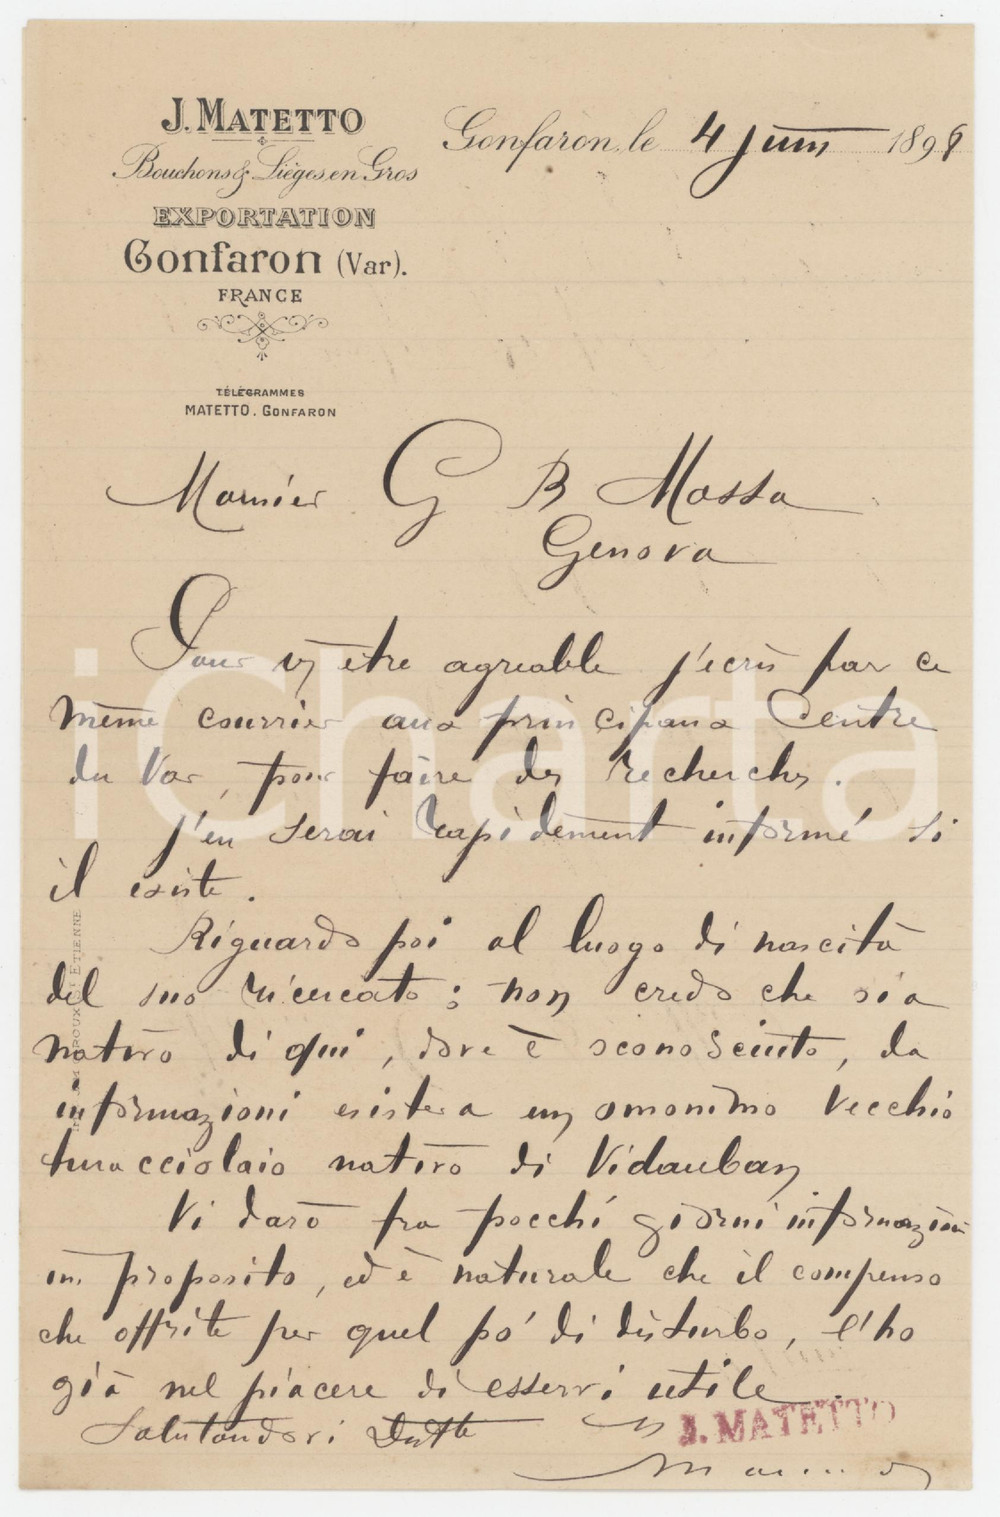 J. MATETTO
Bouchons & Lièges en Gros
EXPORTATION
Gonfaron (Var).
FRANCE
TÉLÉGRAMMES
MATETTO. GONFARON
Gonfaron, le 4 juin 1898
G B Mossa
Genova
Pour vs être agreable j'ecris par ce
même courrier aux principaux Centre
du Var, pour faire des recherches.
j'en serai rapidement informé si
il existe.
Riguardo poi al luogo di nascità
del suo ricercato; non credo che sia
nativo di qui, dove è sconosciuto, da
informazioni esisteva un omonimo vecchio
turacciolaio nativo di Vidauban
Vi darò fra pocchi giorni informazioni
in proposito, ed è naturale che il compenso
che offrite per quel pò di disturbo, l'ho
già nel piacere di esservi utile.
Salutandovi
J. MATETTO
iCharta